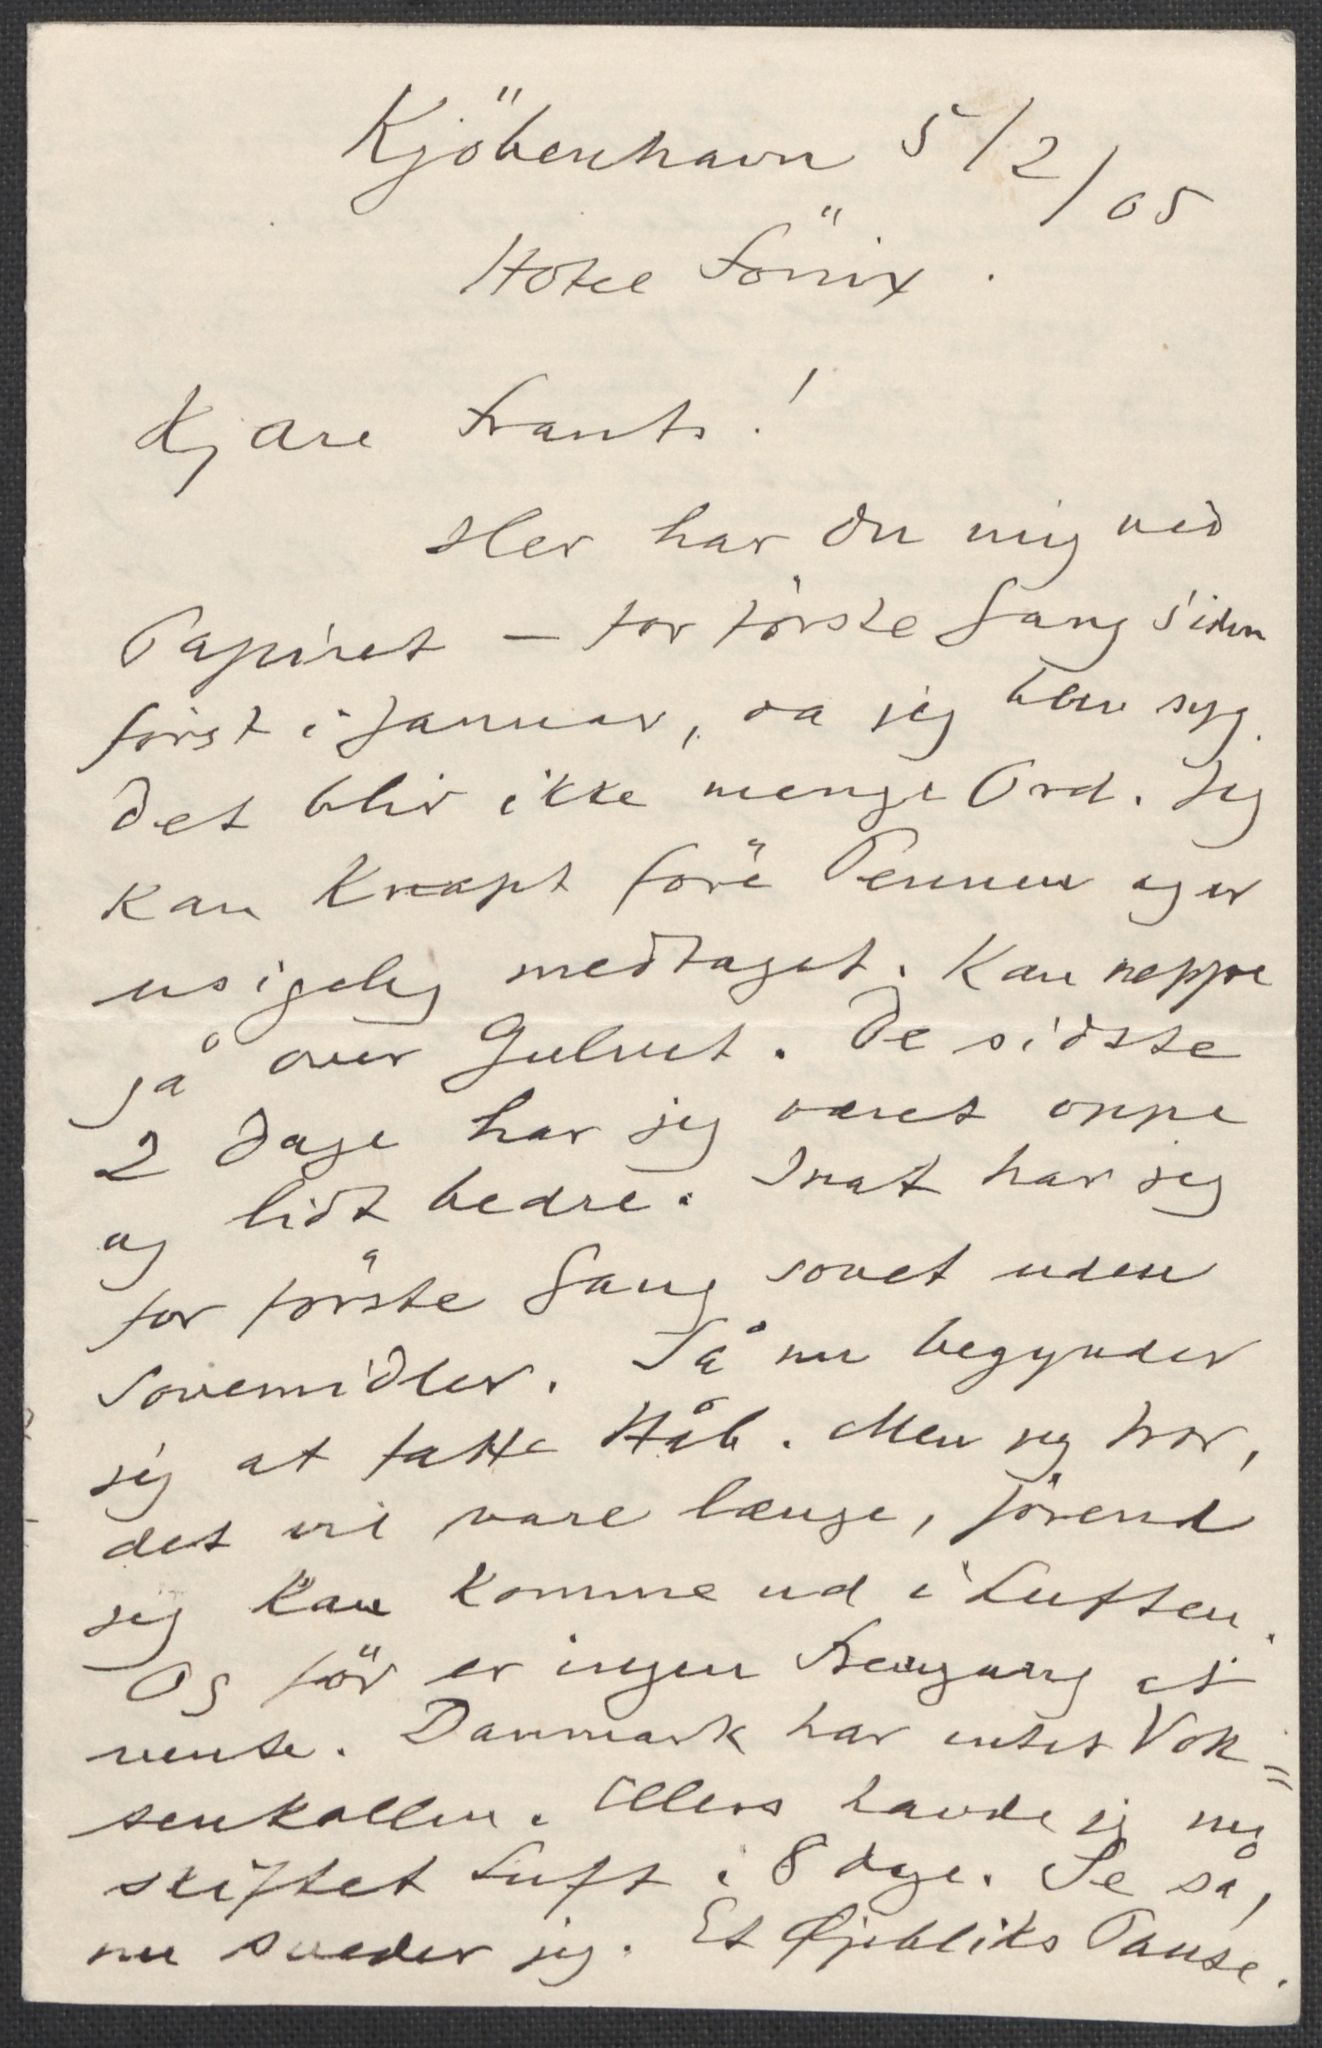 Kjöbenhavn 5/2/05
Hotel Fönix.
Kjære Frants!
Her har Du mig ved
Papiret – for første Gang siden
först i Januar, da jeg blev syg.
Det blir ikke mange Ord. Jeg
kan knapt före Pennen og er
usigelig medtaget. Kan neppe
gå over Gulvet. De sidste
2 Dage har jeg været oppe
og lidt bedre. Inat har jeg
for förste Gang sovet uden
Sovemidler. Så nu begynder
jeg at fatte Håb. Men jeg tror,
det vil vare længe, förend
jeg kan komme ud i Luften.
Og för er ingen Fremgang at
vente. Danmark har intet Vok=
senkollen. Ellers havde jeg nu
skiftet Luft i 8 dage. Se så,
nu sveder jeg. Et Øjebliks Pause.